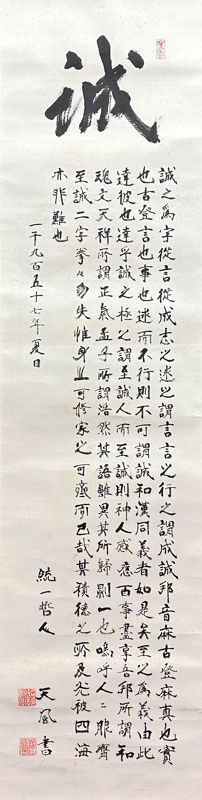 誠
誠之為字從言從成志之述之謂言言之行之謂成誠邦音麻古登麻真也實
也古登言也事也述而不行則不可謂誠和漢同義者如是矣至之為義由此
達彼也達乎誠之極之謂至誠人而至誠則神人感應百事盡享吾邦所謂和
魂文天祥所謂正氣孟子所謂浩然其語雖異其所歸則一也嗚呼人々服膺
至誠二字拳々勿失惟身之可修家之可齊而已哉其積德之所及光被四海
亦非難也
一千九百五十七年夏日
統一哲人
天風書